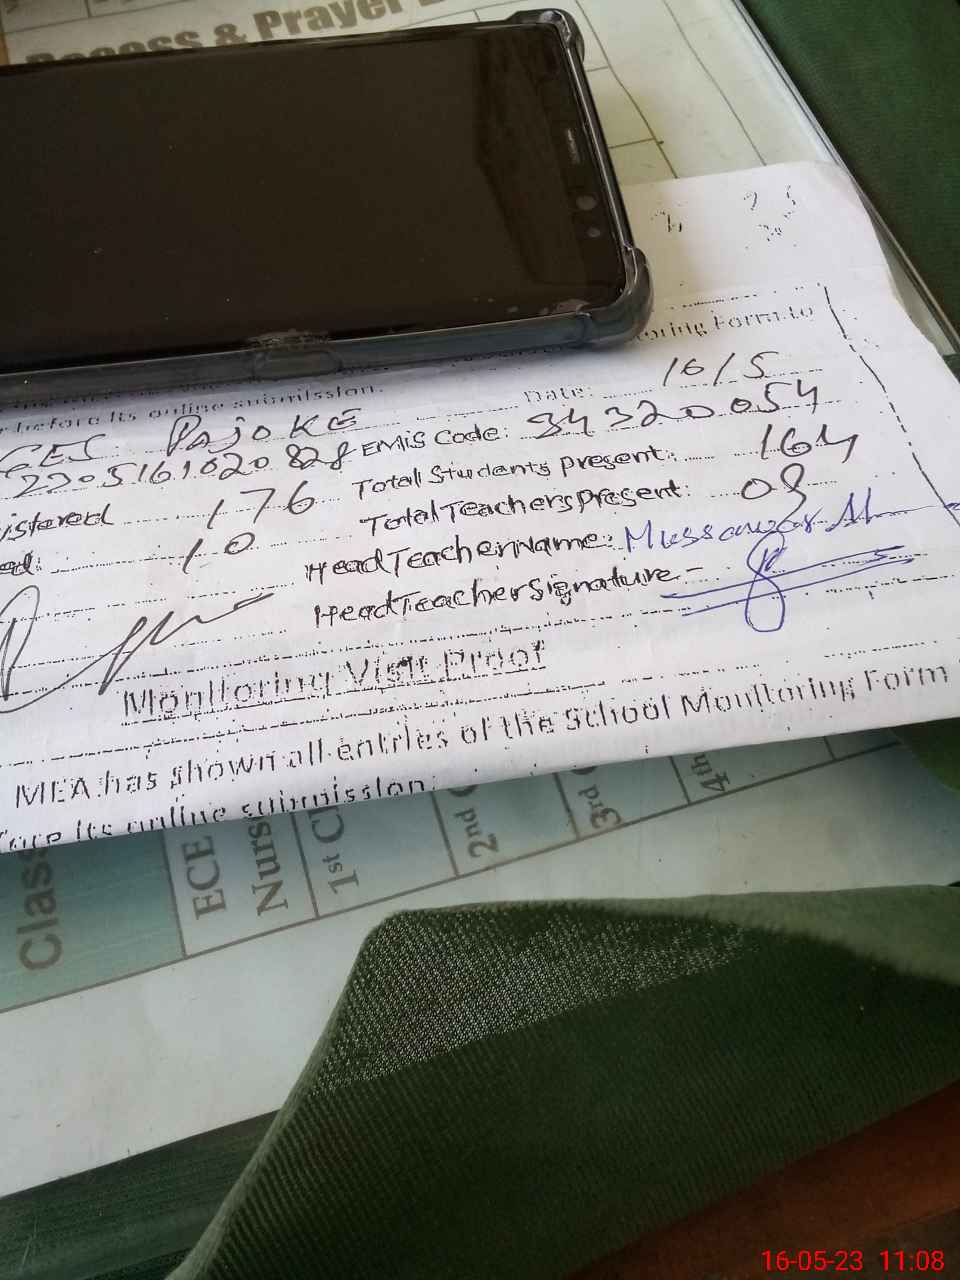 Recess & Prayer
oring Form to
before its online submission.
Date: 16/5
GES Pajo KE EMIS Code: 34320054
2205161020828 Total Students present: 164
istered 176 Total Teachers Present: 08
ed: 10 Head Teacher Name:
Head Teacher Signature
Monitoring Visit Proof
MEA has shown all entries of the School Monitoring Form
fore its online submission.
Class
ECE
Nurs
1st Cl
2nd C
3rd C
4th
16-05-23 11:08